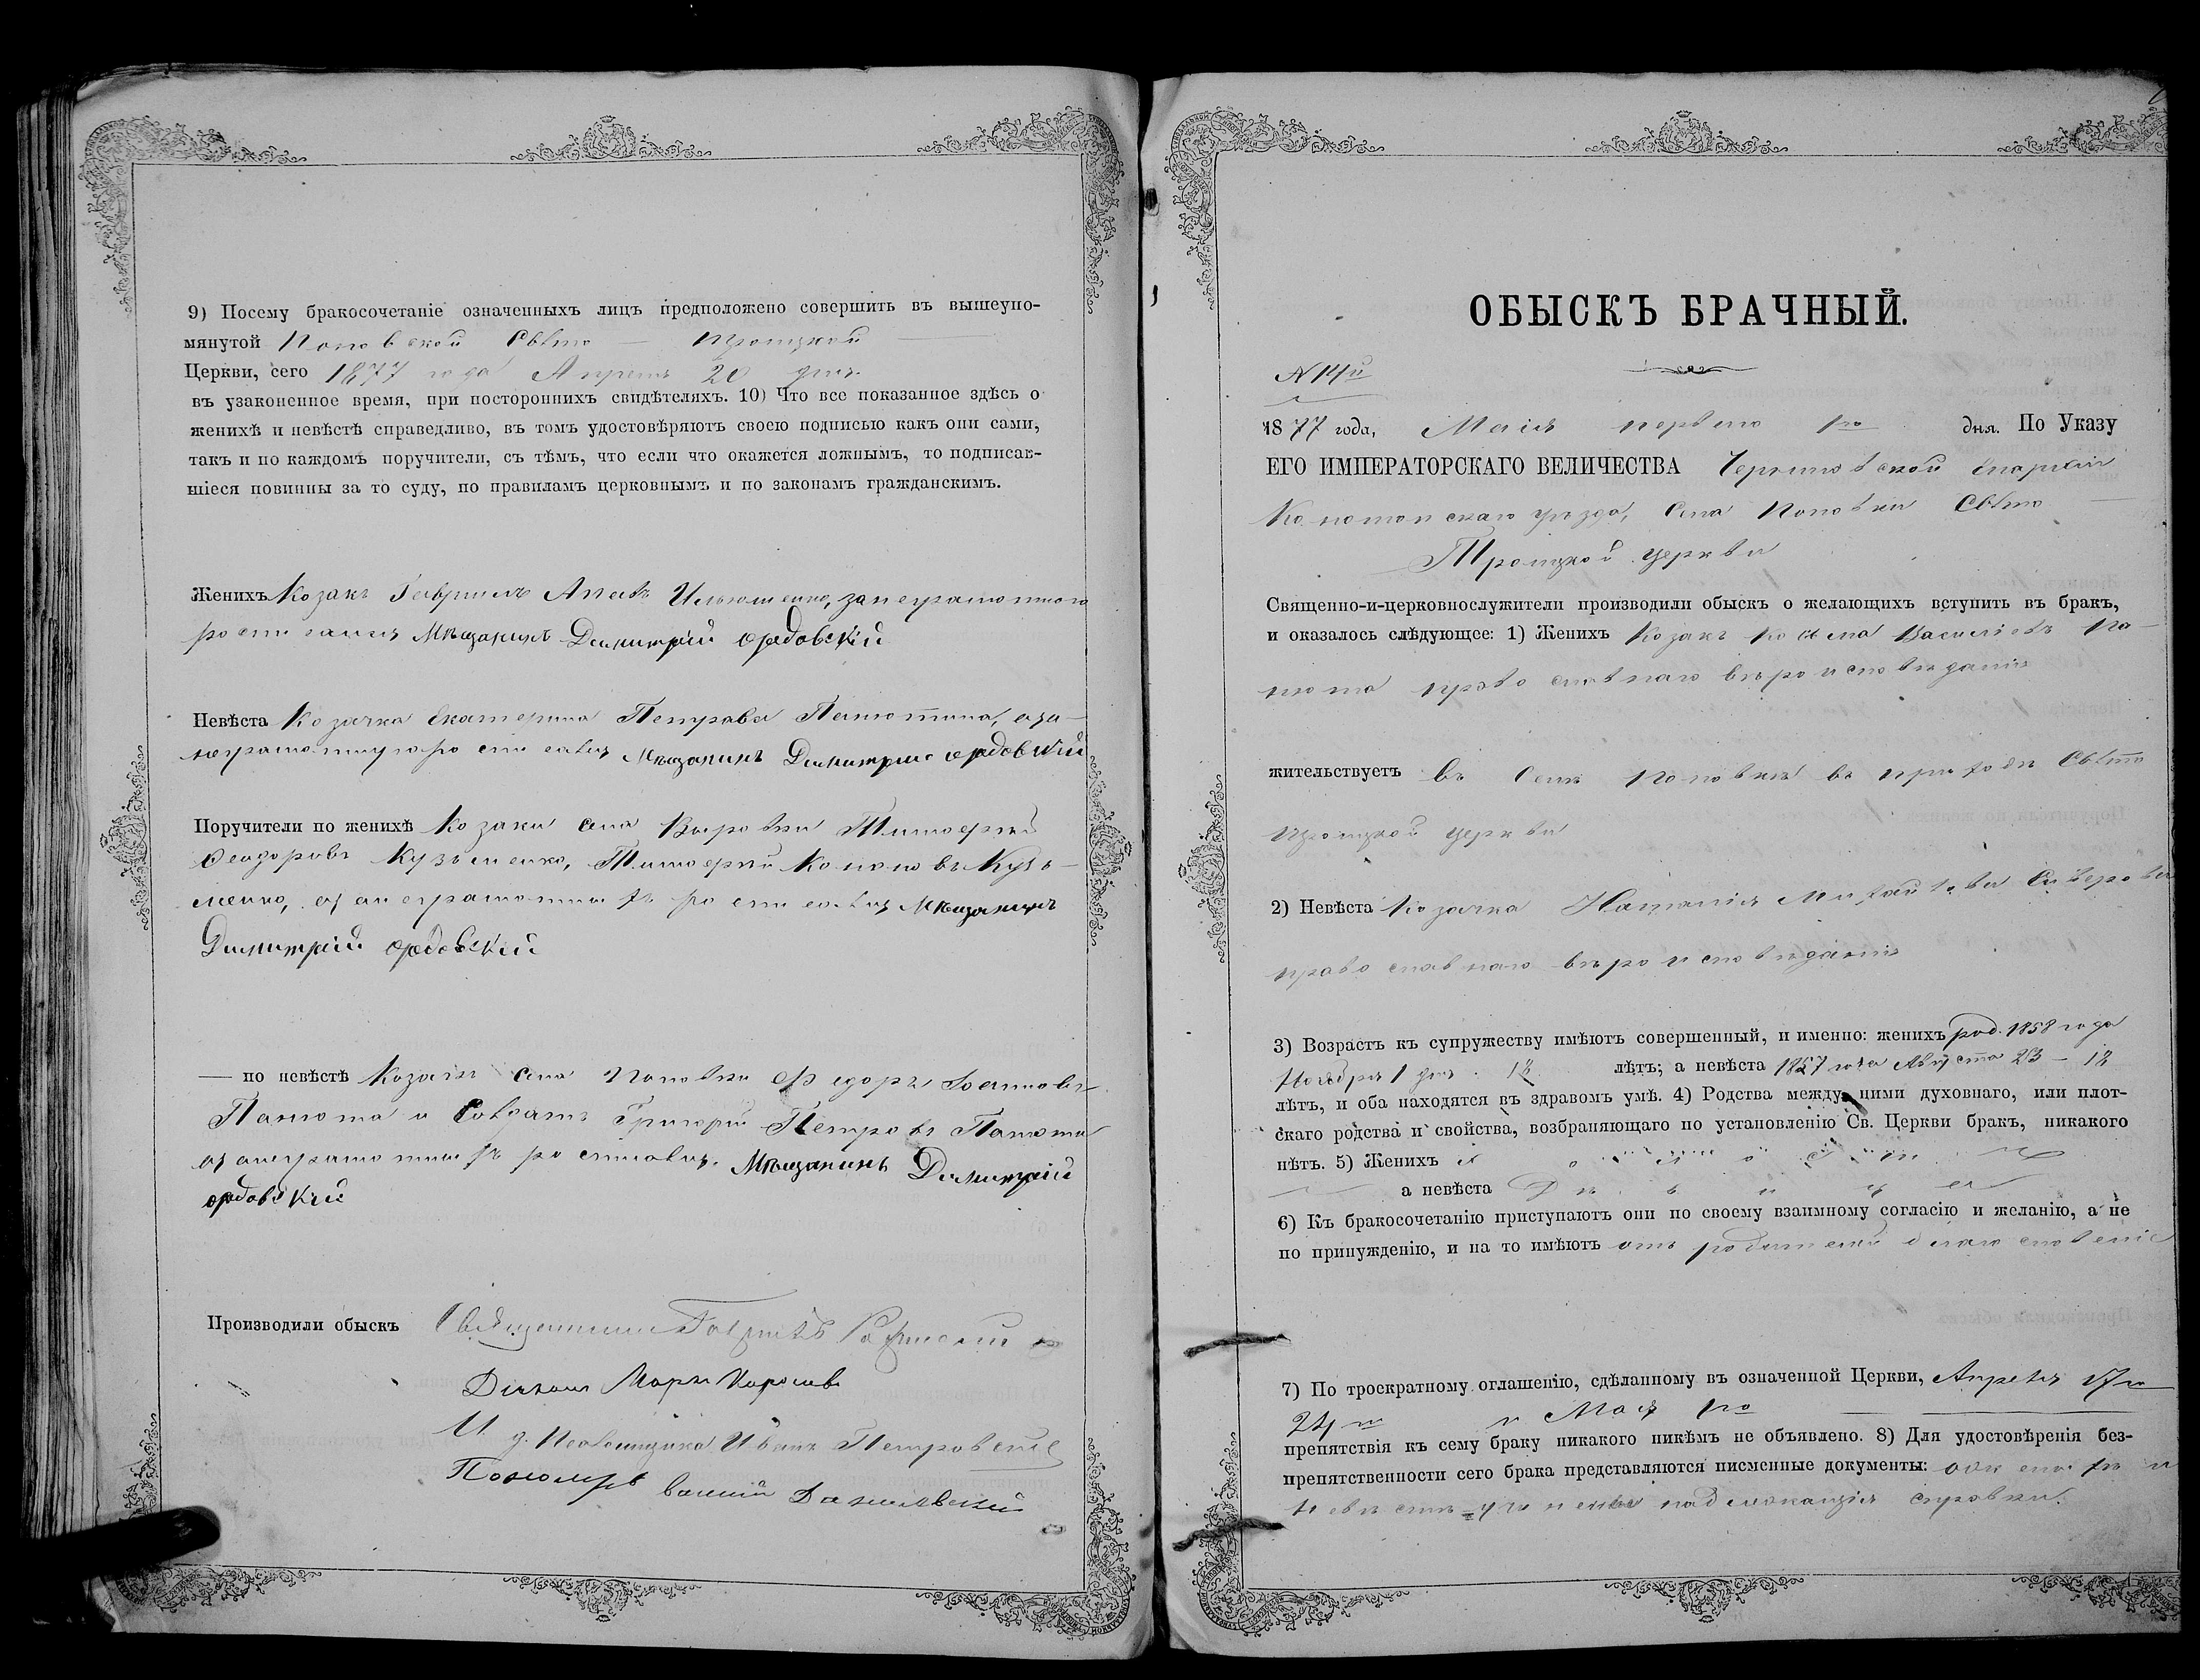 9) Посему бракосочетаніе означенныхъ лицъ предположено совершить въ вышеупо-
мянутой Поповской Свято — Троицкой
Церкви, сего 1877 года Апреля 20 дня.
въ узаконенное время, при постороннихъ свидѣтеляхъ. 10) Что все показанное здѣсь о
женихѣ и невѣстѣ справедливо, въ томъ удостовѣряютъ своею подписью какъ они сами,
такъ и по каждомъ поручители, съ тѣмъ, что если что окажется ложнымъ, то подписав-
шіеся повинны за то суду, по правиламъ церковнымъ и по законамъ гражданскимъ.
Женихъ Козакъ Гавриилъ Ильюшенко, за неграмотного
росписался Мѣщанинъ Димитрій
Невѣста Козачка Екатерина Петрова
неграмотную росписался Мѣщанинъ Димитрій
Поручители по женихѣ Козаки села Вировки Тимофей
Феодоровъ Кузьменко, Тимофей Кононовъ Кузь-
менко, а за неграмотныхъ росписался Мѣщанинъ
Димитрій
— по невѣстѣ Козакъ села Поповки Федоръ
Панюта и Солдатъ Григорій Петровъ Панюта
а за неграмотныхъ росписался. Мѣщанинъ Димитрій
Производили обыскъ Священникъ
Діаконъ Маркъ
И. д. Псаломщика Иванъ Петровскій
Пономарь Данилевскій
ОБЫСКЪ БРАЧНЫЙ.
№ 14й
1877 года, Маія перваго 1го дня. По Указу
ЕГО ИМПЕРАТОРСКАГО ВЕЛИЧЕСТВА Черниговской Епархіи
Конотопскаго уѣзда, Села Поповки Свято —
Троицкой церкви
Священно-и-церковнослужители производили обыскъ о желающихъ вступить въ бракъ,
и оказалось слѣдующее: 1) Женихъ Козакъ Косьма Васильевъ Па-
нюта православнаго вѣроисповѣданія
жительствуетъ въ Селѣ Поповкѣ въ приходѣ Свято
Троицкой церкви
2) Невѣста Козачка Наталія Михайлова
православнаго вѣроисповѣданія
3) Возрастъ къ супружеству имѣютъ совершенный, и именно: женихъ род. 1858 года
Ноября 1 дня 18 лѣтъ; а невѣста 1857 года Августа 23 — 18
лѣтъ, и оба находятся въ здравомъ умѣ. 4) Родства между ними духовнаго, или плот-
скаго родства и свойства, возбраняющаго по установленію Св. Церкви бракъ, никакого
нѣтъ. 5) Женихъ Холостъ
а невѣста Дѣвица
6) Къ бракосочетанію приступаютъ они по своему взаимному согласію и желанію, а не
по принужденію, и на то имѣютъ отъ родителей благословеніе
7) По троекратному оглашенію, сдѣланному въ означенной Церкви, Апреля 17го
24го и Мая 1го
препятствія къ сему браку никакого никѣмъ не объявлено. 8) Для удостовѣренія без-
препятственности сего брака представляются писменные документы: о женихѣ и
невѣстѣ учинена надлежащія справки.